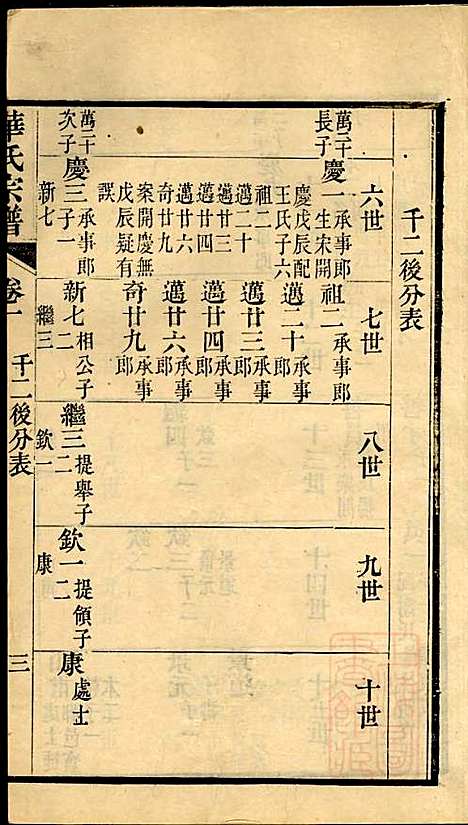 千二後分表
六世
七世
八世
九世
十世
萬二十長子
慶一承事郎
生宋開慶戊辰配王氏子六
祖二
邁二十
邁廿三
邁廿四
邁廿六
奇廿九
案開慶無戊辰疑有誤
祖二承事郎
邁二十承事郎
邁廿三承事郎
邁廿四承事郎
邁廿六承事郎
奇廿九承事郎
萬二十次子
慶三承事郎
子一
新七
新七相公子二
繼三
繼三提舉子二
欽一
欽一提領子二
康
康處士
華氏宗譜
卷一
千二後分表
三